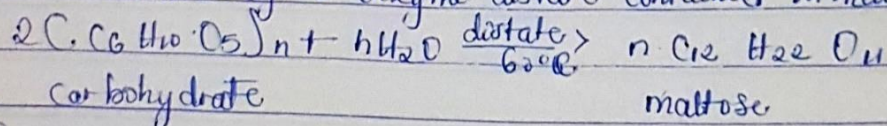 2(.C6 H10.O5)n + nH2O diastate/60°C> n. C12 H22 O11
Carbohydrate maltose